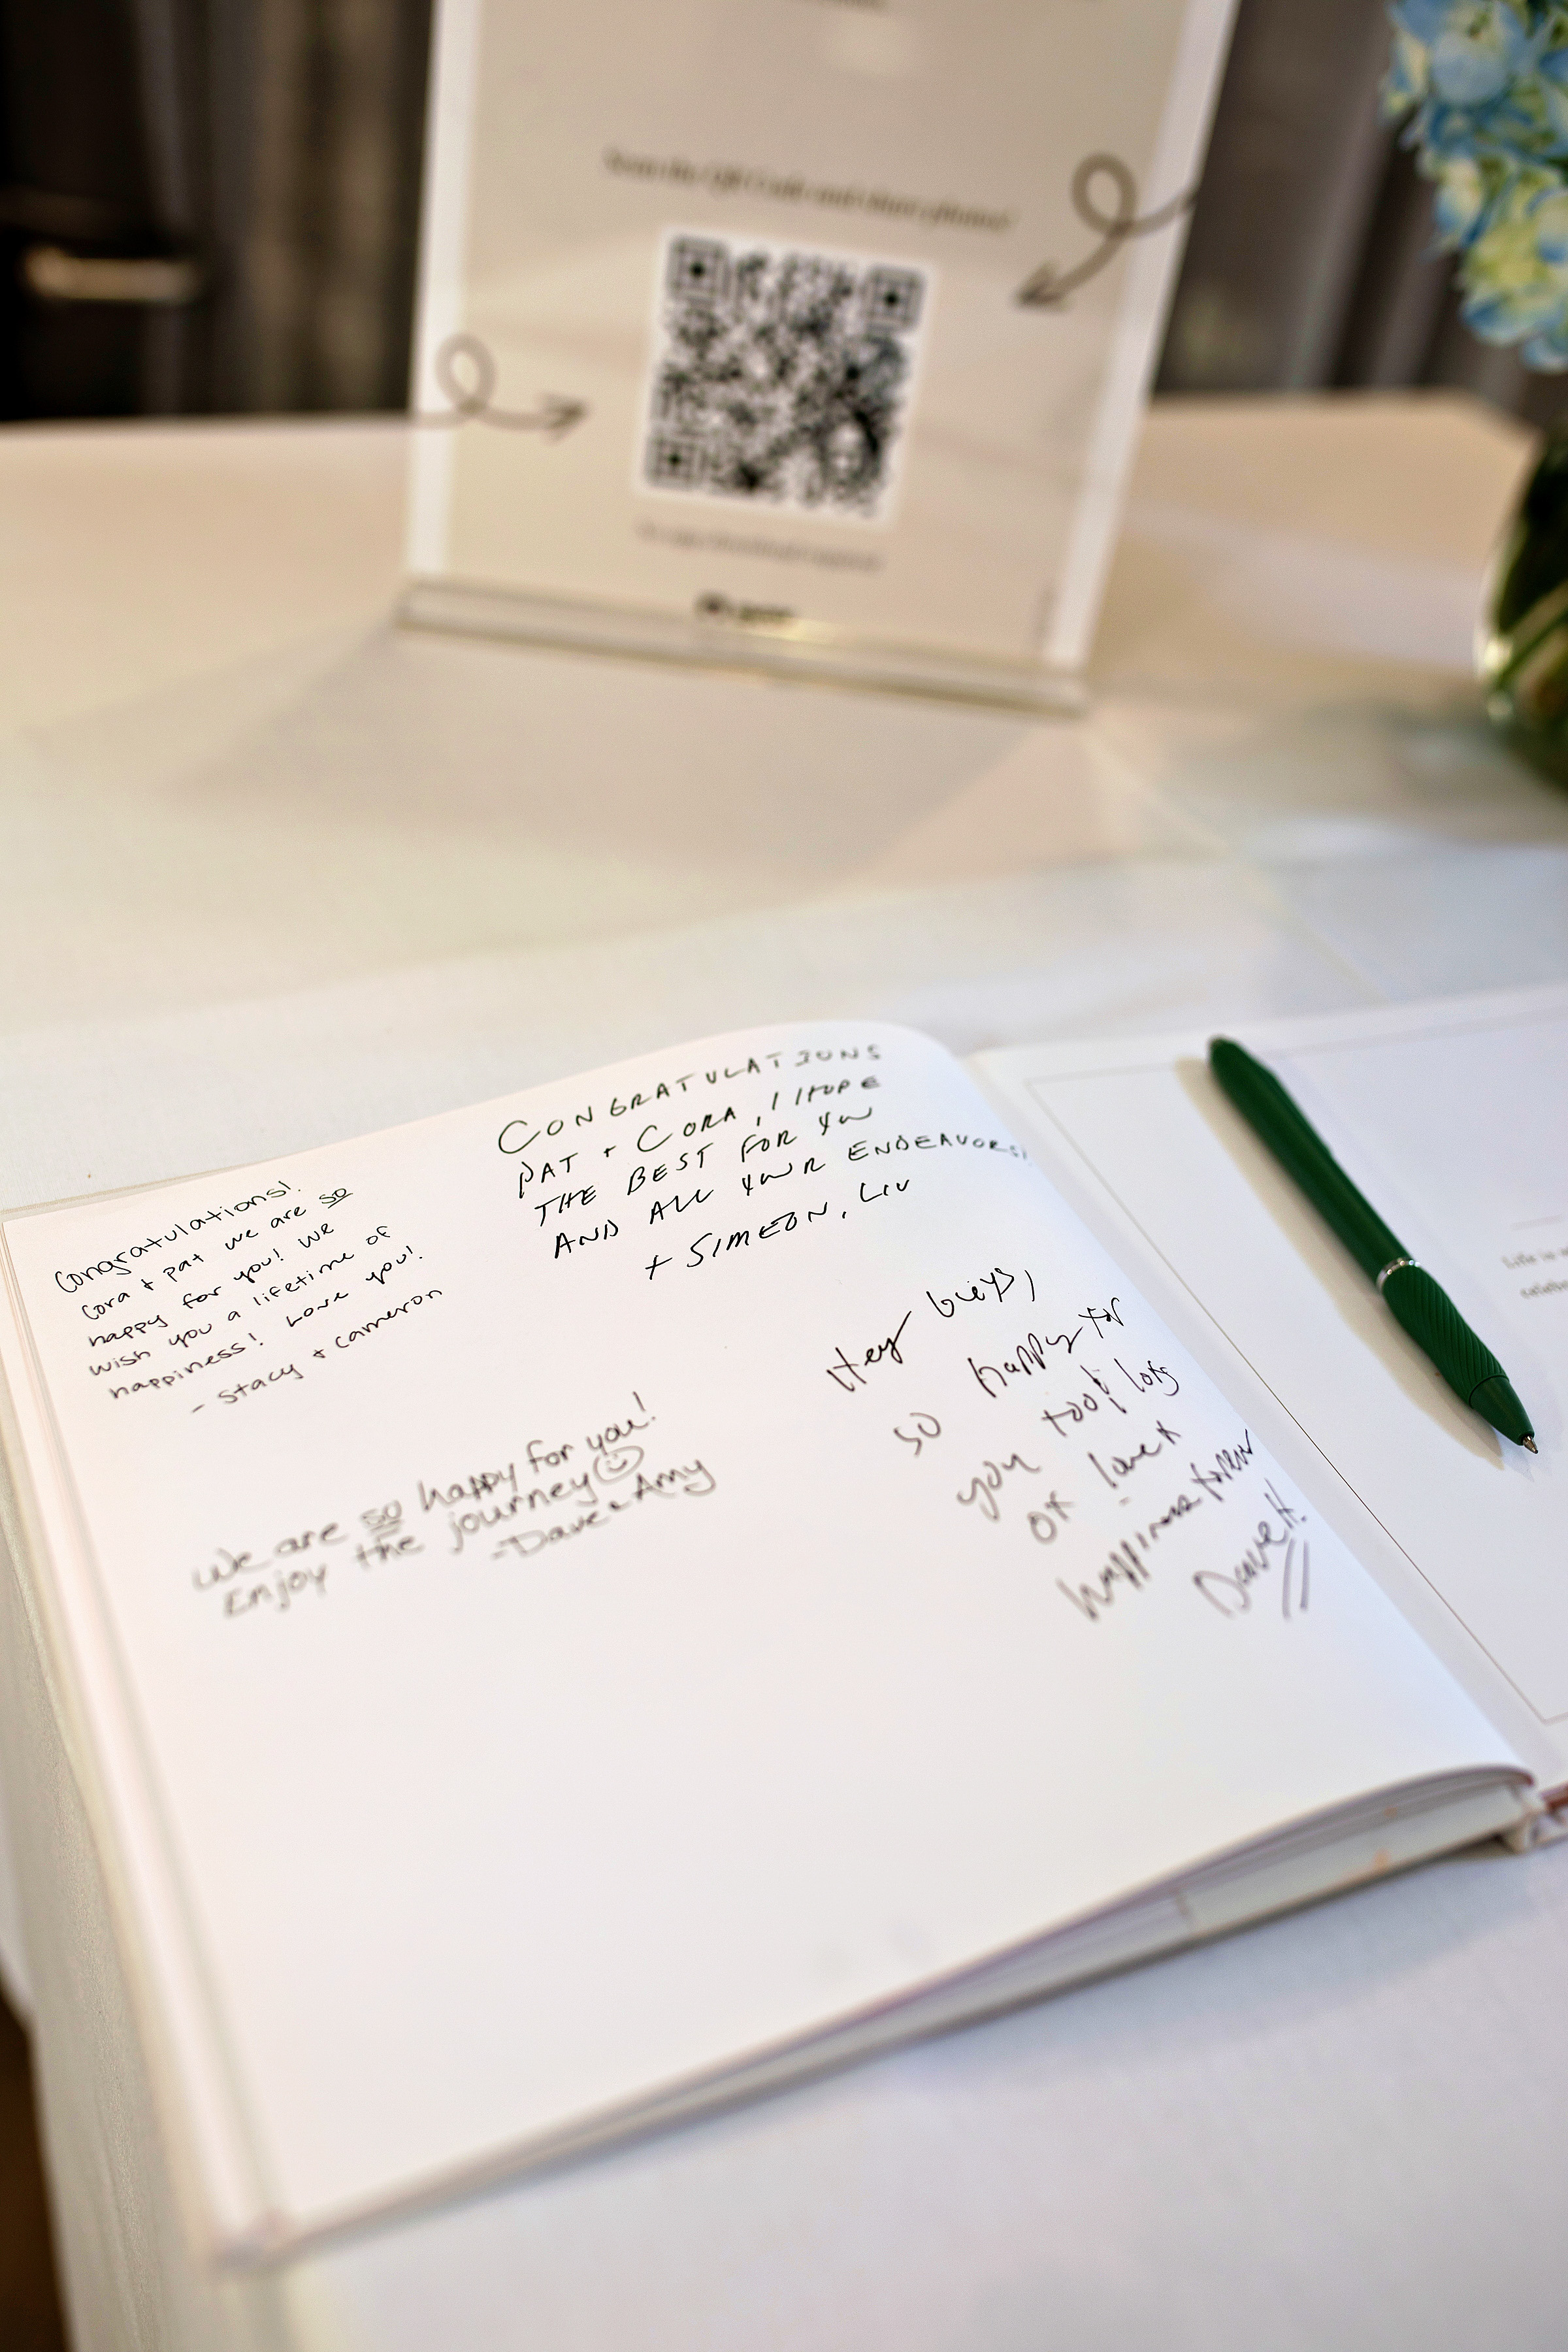 Scan the QR Code and share photos!
Congratulations!
Cora + pat we are so
happy for you! We
wish you a lifetime of
happiness! Love you!
- Stacy + Cameron
CONGRATULATIONS
PAT + CORA, I HOPE
THE BEST FOR YOU
AND ALL YOUR ENDEAVORS!
+ SIMEON, LIV
We are so happy for you!
Enjoy the journey
- Dave + Amy
Hey Guys,
so happy for
you too! lots
of love +
happiness
Dave H.
Life is